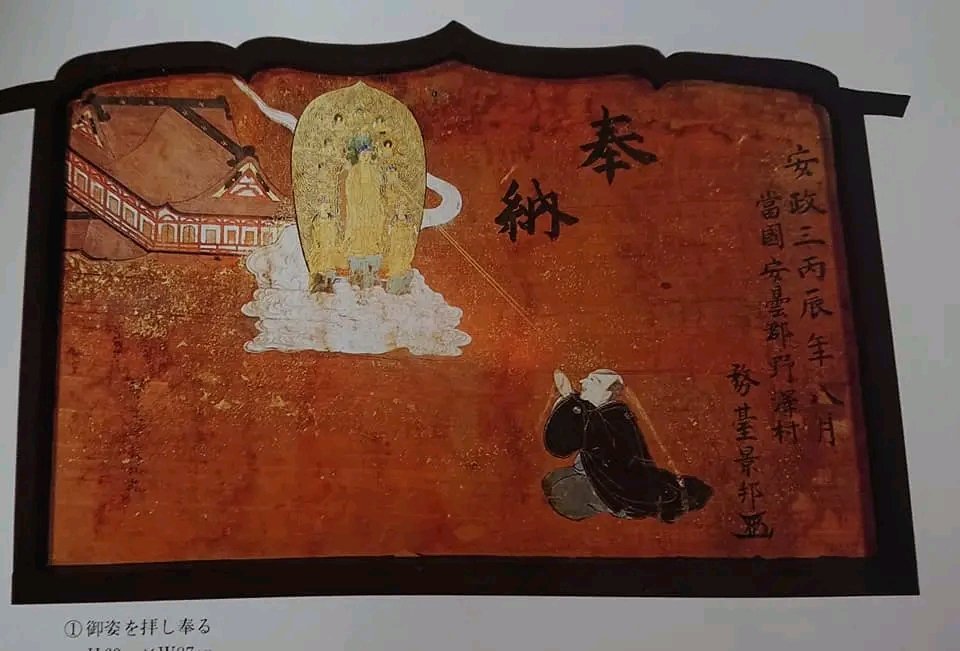 奉
納
安政三丙辰年八月
當國安曇郡野澤村
務臺景邦
①御姿を拝し奉る